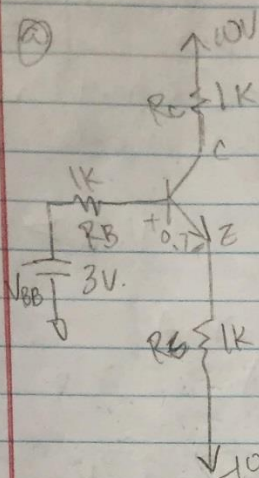 a
10V
RC 1K
C
1K
RB
+
0.7
E
VBB
3V.
1K